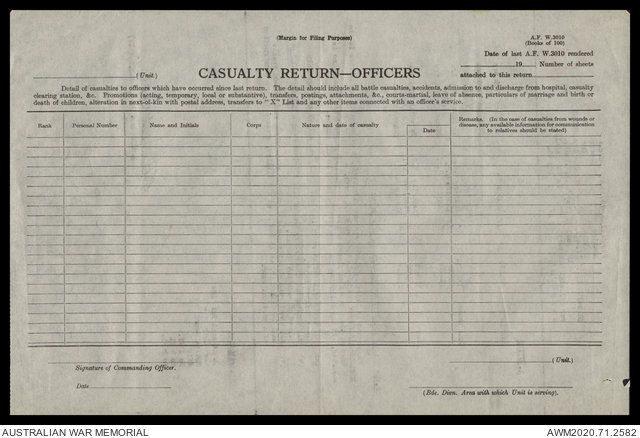 (Margin for Filing Purposes)
A.F. W.3010
(Books of 100)
Date of last A.F. W.3010 rendered
19 Number of sheets
(Unit.) CASUALTY RETURN—OFFICERS attached to this return
Detail of casualties to officers which have occurred since last return. The detail should include all battle casualties, accidents, admission to and discharge from hospital, casualty
clearing station, &c. Promotions (acting, temporary, local or substantive), transfers, postings, attachments, &c., courts-martial, leave of absence, particulars of marriage and birth or
death of children, alteration in next-of-kin with postal address, transfers to "X" List and any other items connected with an officer's service.
Rank Personal Number Name and Initials Corps Nature and date of casualty Date Remarks. (In the case of casualties from wounds or
disease, any available information for communication
to relatives should be stated)
(Unit.)
Signature of Commanding Officer.
Date
(Bde. Divn. Area with which Unit is serving).
AUSTRALIAN WAR MEMORIAL AWM2020.71.2582